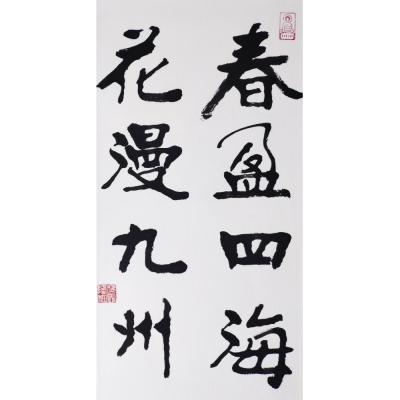 春盈四海
花漫九州